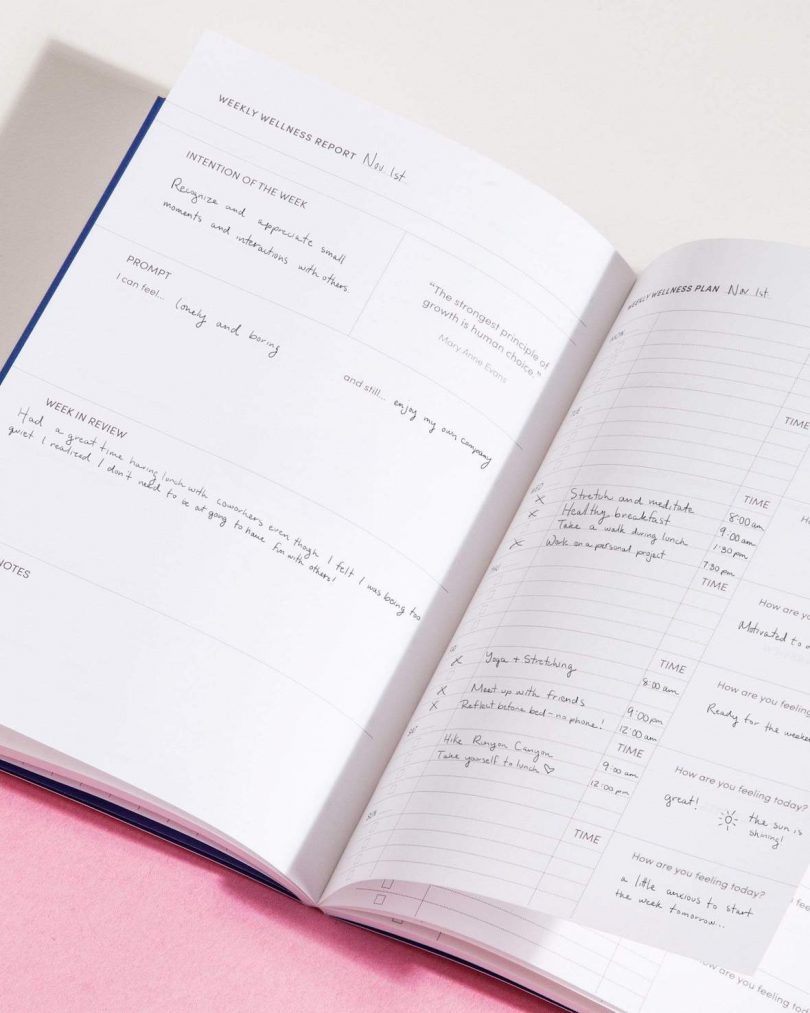 WEEKLY WELLNESS REPORT Nov. 1st
INTENTION OF THE WEEK
Recognize and appreciate small
moments and interactions with others.
"The strongest principle of
growth is human choice."
Mary Anne Evans
PROMPT
I can feel... lonely and boring
and still... enjoy my own company
WEEK IN REVIEW
Had a great time having lunch with coworkers even though I felt I was being too
quiet. I realized I don't need to be at gong to have fun with others!
NOTES
WEEKLY WELLNESS PLAN Nov. 1st
MON
TUE
TIME
WED
TIME
X Stretch and meditate 8:00 am
X Healthy breakfast 9:00 am
Take a walk during lunch 1:30 pm
X Work on a personal project 7:30 pm
TIME
How are yo
Motivated to
TIME
X Yoga + Stretching 8:00 am
X Meet up with friends 9:00 pm
X Reflect before bed - no phone! 12:00 am
How are you feeling
Ready for the weeke
SAT
TIME
Hike Runyon Canyon 9:00 am
Take yourself to lunch ♡ 12:00 pm
How are you feeling today?
great! the sun is
shining!
SUN
TIME
How are you feeling today?
a little anxious to start
the week tomorrow...
How are you feeling today